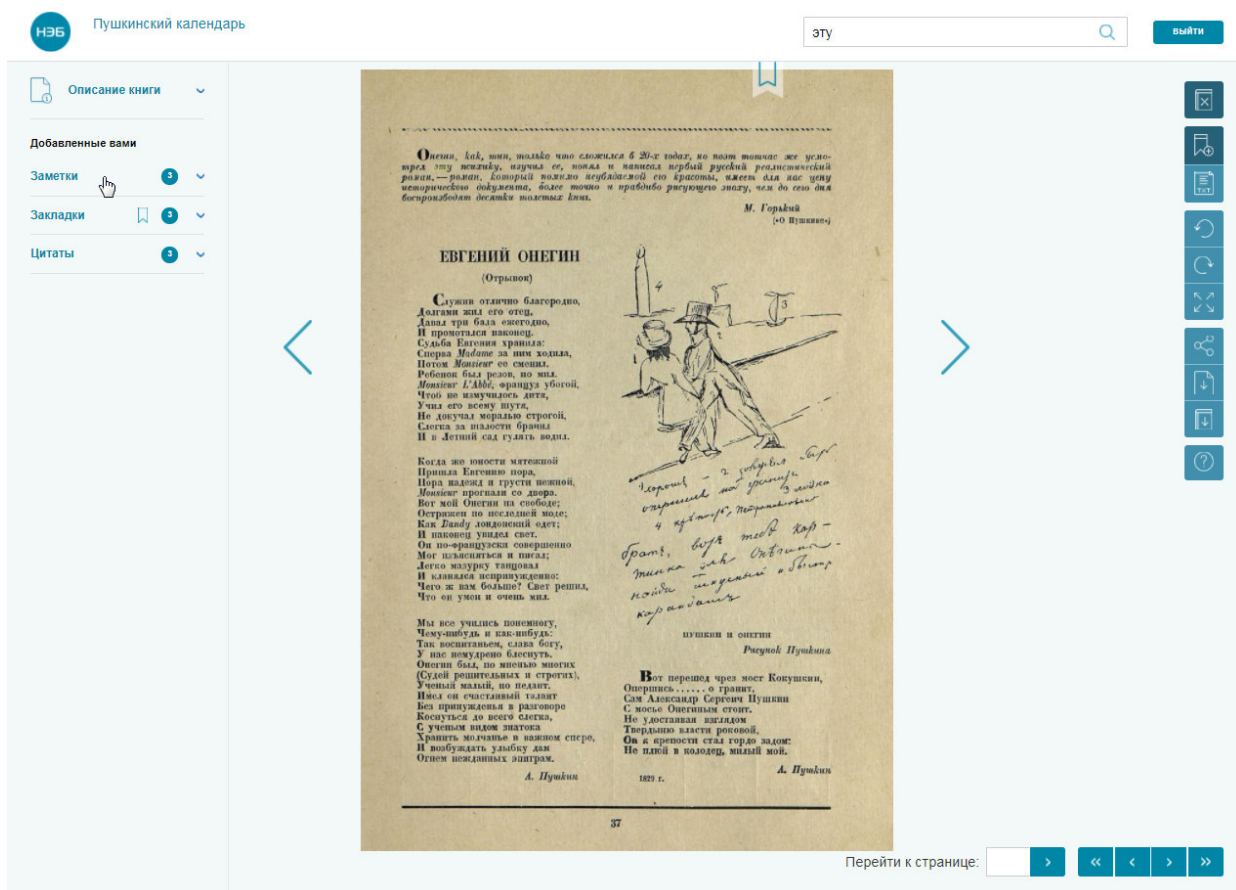 НЭБ
Пушкинский календарь
эту
выйти
Описание книги
Добавленные вами
Заметки 3
Закладки 3
Цитаты 3
Онегин, как, тип, только что сложился в 20-х годах, но поэт тотчас же усмо-
трел эту психику, изучил ее, понял и написал первый русский реалистический
роман, — роман, который помимо неувядаемой его красоты, имеет для нас цену
исторического документа, более точно и правдиво рисующего эпоху, чем до сего дня
воспроизводят десятки толстых книг.
М. Горький
(«О Пушкине»)
ЕВГЕНИЙ ОНЕГИН
(Отрывок)
Служив отлично благородно,
Долгами жил его отец,
Давал три бала ежегодно,
И промотался наконец.
Судьба Евгения хранила:
Сперва Madame за ним ходила,
Потом Monsieur ее сменил.
Ребенок был резов, но мил.
Monsieur L'Abbé, француз убогой,
Чтоб не измучилось дитя,
Учил его всему шутя,
Не докучал моралью строгой,
Слегка за шалости бранил
И в Летний сад гулять водил.
Когда же юности мятежной
Пришла Евгению пора,
Пора надежд и грусти нежной,
Monsieur прогнали со двора.
Вот мой Онегин на свободе;
Острижен по последней моде;
Как Dandy лондонский одет;
И наконец увидел свет.
Он по-французски совершенно
Мог изъясняться и писал;
Легко мазурку танцовал
И кланялся непринужденно:
Чего ж вам больше? Свет решил,
Что он умен и очень мил.
Мы все учились понемногу,
Чему-нибудь и как-нибудь:
Так воспитаньем, слава богу,
У нас немудрено блеснуть.
Онегин был, по мненью многих
(Судей решительных и строгих),
Ученый малый, но педант.
Имел он счастливый талант
Без принужденья в разговоре
Коснуться до всего слегка,
С ученым видом знатока
Хранить молчанье в важном споре,
И возбуждать улыбку дам
Огнем нежданных эпиграм.
А. Пушкин
4
3
2
1
хорошъ
4
братъ, вотъ тебѣ кар-
тинка для Онѣгина -
найди искусный и быстрый
карандашъ
ПУШКИН И ОНЕГИН
Рисунок Пушкина
Вот перешед чрез мост Кокушкин,
Опершись ...... о гранит,
Сам Александр Сергеич Пушкин
С мосье Онегиным стоит.
Не удостаивая взглядом
Твердыню власти роковой,
Он к крепости стал гордо задом:
Не плюй в колодец, милый мой.
А. Пушкин
1829 г.
37
TXT
Перейти к странице: